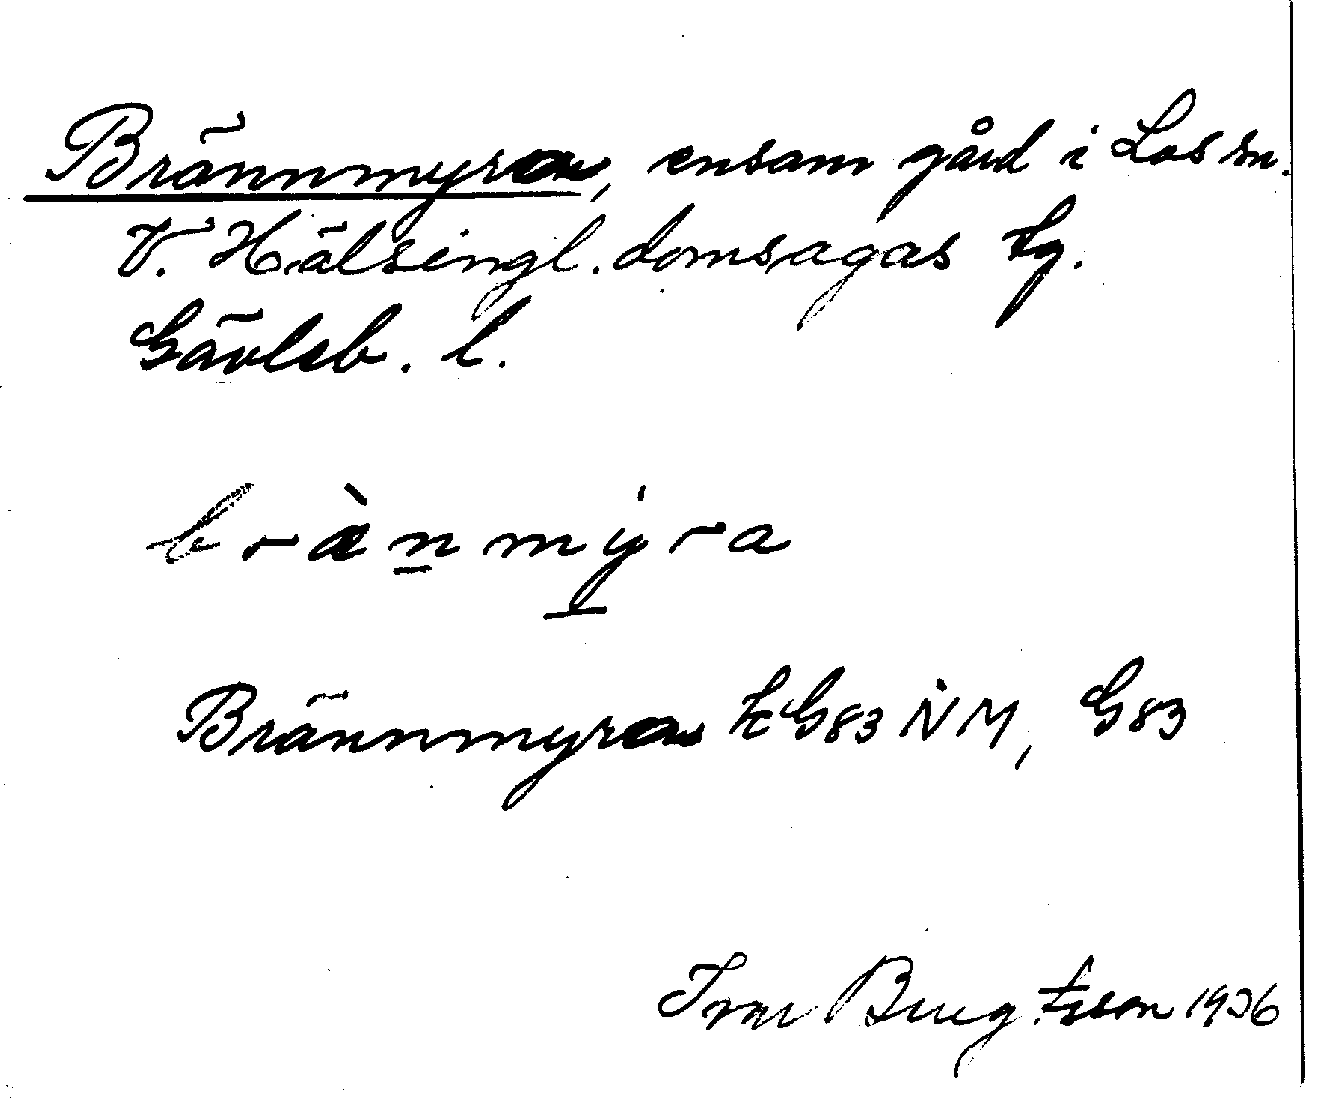 Brännmyran, ensam gård i Los sn.
V. Hälsingl. domsagas tg.
Gävleb. l.
bræ̀n̲mý̲ra
Brännmyran EG83 NM, G83
Ivar Bengtsson 1936